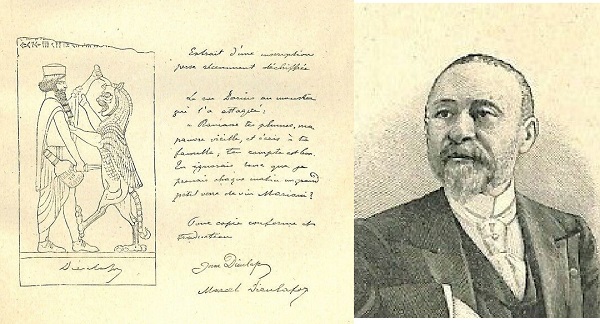 Extrait d'une inscription
perse récemment déchiffrée
Le roi Darius au monstre
qui l'a attaqué :
« Ramasse tes plumes, ma
pauvre vieille, et écris à ta
famille, ton compte est bon.
Tu ignorais donc que je
prenais chaque matin un grand
petit verre de vin Mariani ?
Pour copie conforme et
traduction
Jane Dieulafoy
Marcel Dieulafoy
Dieulafoy